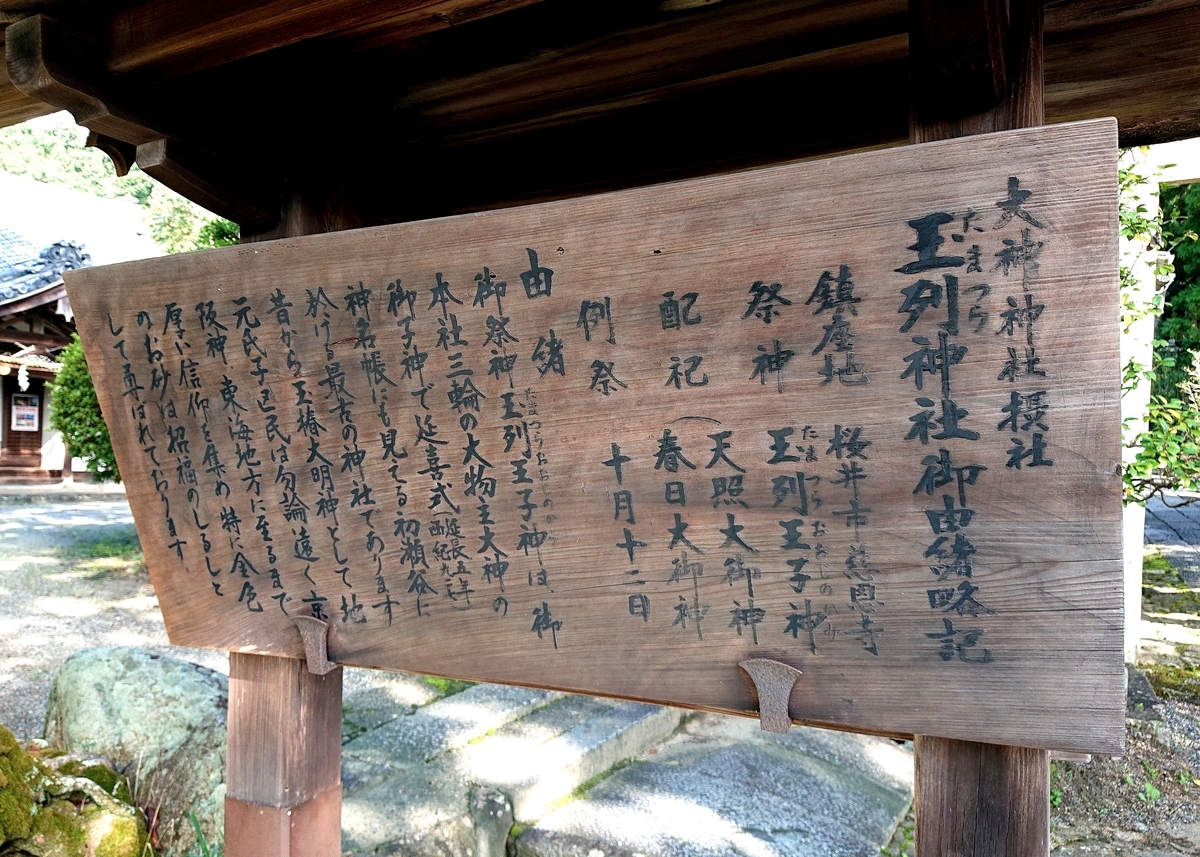 大神神社摂社
たまつら
玉列神社御由緒略記
鎮座地 桜井市慈恩寺
祭神 玉列王子神
たまつらおおじのかみ
配祀 天照大御神
春日大御神
例祭 十月十二日
由緒
御祭神玉列王子神は、御
たまつらおおじのかみ
本社三輪の大物主大神の
御子神で延喜式 延長五年 西紀九二七
神名帳にも見てる初瀬谷に
於ける最古の神社であります
昔から玉椿大明神として地
元氏子区民は勿論遠く京
阪神、東海地方に至るまで
厚い信仰を集め特に金色
のお砂は招福のしるしと
して尊ばれております